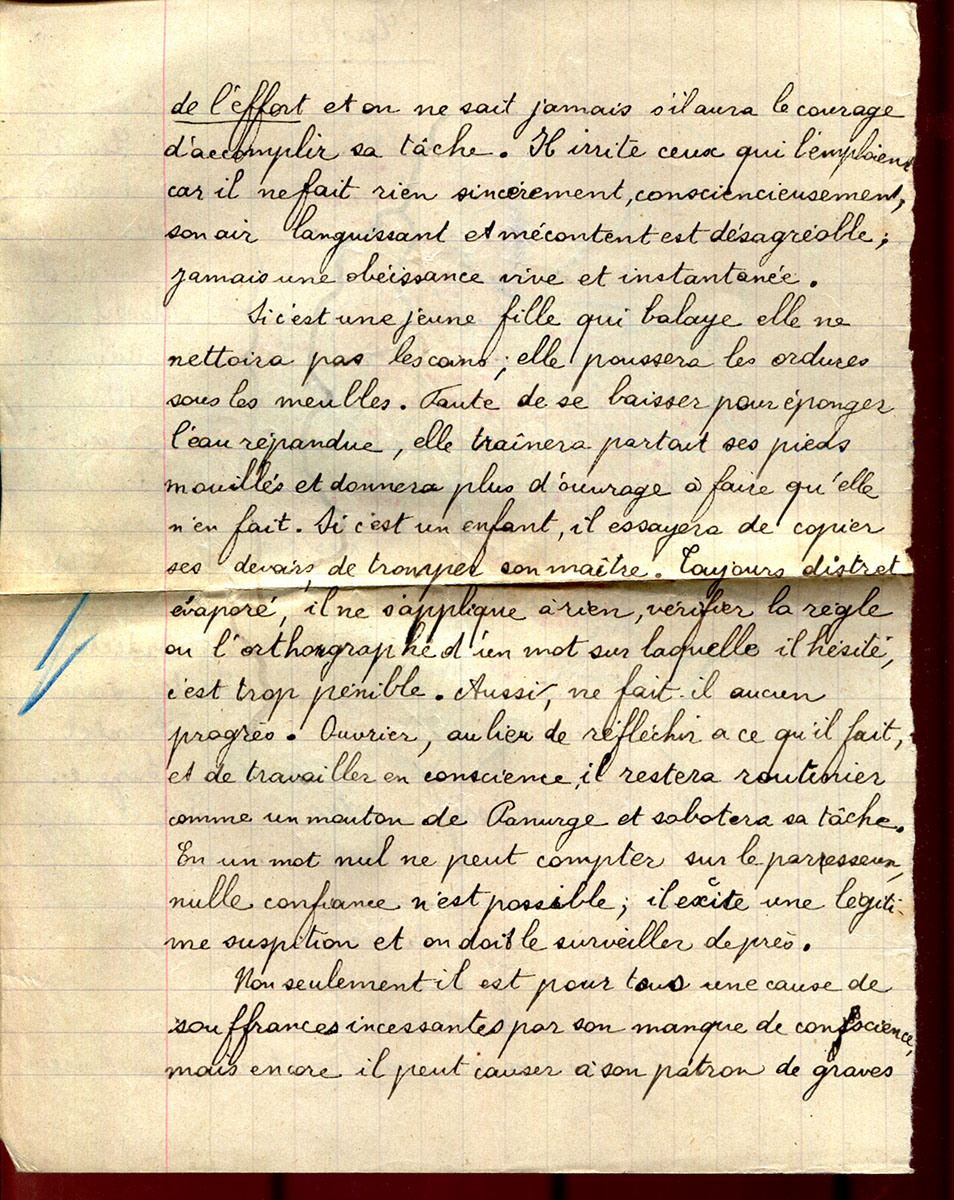 de l'effort et on ne sait jamais s'il aura le courage
d'accomplir sa tâche. Il irrite ceux qui l'emploient
car il ne fait rien sincèrement, consciencieusement,
son air languissant et mécontent est désagréable ;
jamais une obéissance vive et instantanée.
Si c'est une jeune fille qui balaye elle ne
nettoira pas les coins ; elle poussera les ordures
sous les meubles. Faute de se baisser pour éponger
l'eau répandue, elle traînera partout ses pieds
mouillés et donnera plus d'ouvrage à faire qu'elle
n'en fait. Si c'est un enfant, il essayera de copier
ses devoirs, de tromper son maître. Toujours distret
évaporé, il ne s'applique à rien, vérifier la règle
ou l'orthographe d'un mot sur laquelle il hésité,
c'est trop pénible. Aussi, ne fait-il aucun
progrès. Ouvrier, au lieu de réfléchir a ce qu'il fait,
et de travailler en conscience, il restera routinier
comme un mouton de Panurge et sabotera sa tâche.
En un mot nul ne peut compter sur le paresseux,
nulle confiance n'est possible ; il excite une légiti-
me suspition et on doit le surveiller de près.
Non seulement il est pour tous une cause de
souffrances incessantes par son manque de conscience,
mais encore il peut causer à son patron de graves